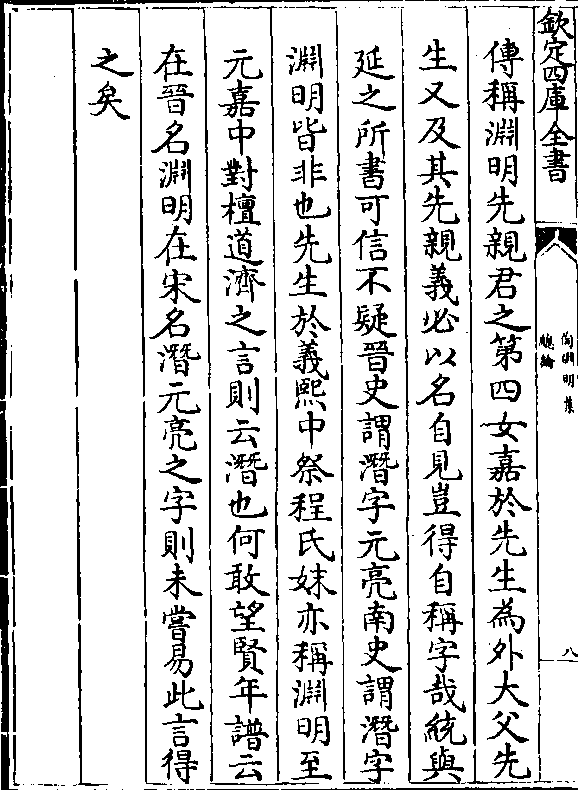 欽定四庫全書
陶淵明集
總論
八
傳稱淵明先親君之第四女嘉於先生為外大父先
生又及其先親義必以名自見豈得自稱字哉統與
延之所書可信不疑晉史謂潛字元亮南史謂潛字
淵明皆非也先生於義熙中祭程氏妹亦稱淵明至
元嘉中對檀道濟之言則云潛也何敢望賢年譜云
在晉名淵明在宋名潛元亮之字則未嘗易此言得
之矣